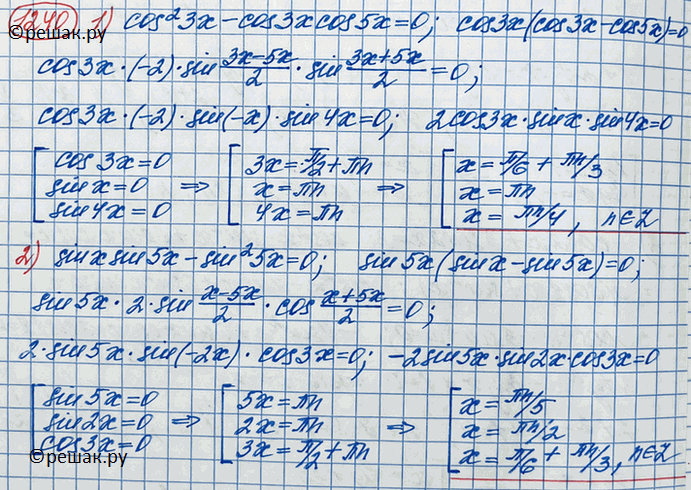 ©решак.ру
1240 1) cos²3x - cos3x cos5x = 0; cos3x(cos3x - cos5x) = 0
cos3x · (-2) · sin (3x-5x)/2 · sin (3x+5x)/2 = 0;
cos3x · (-2) · sin(-x) · sin4x = 0; 2cos3x · sinx · sin4x = 0
[ cos3x = 0 [ 3x = π/2 + πn [ x = π/6 + πn/3
sinx = 0 ⇒ x = πn ⇒ x = πn
sin4x = 0 4x = πn x = πn/4, n∈Z
2) sinx sin5x - sin²5x = 0; sin5x(sinx - sin5x) = 0;
sin5x · 2 · sin (x-5x)/2 · cos (x+5x)/2 = 0;
2 · sin5x · sin(-2x) · cos3x = 0; -2sin5x · sin2x · cos3x = 0
[ sin5x = 0 [ 5x = πn [ x = πn/5
sin2x = 0 ⇒ 2x = πn ⇒ x = πn/2
cos3x = 0 3x = π/2 + πn x = π/6 + πn/3, n∈Z
©решак.ру